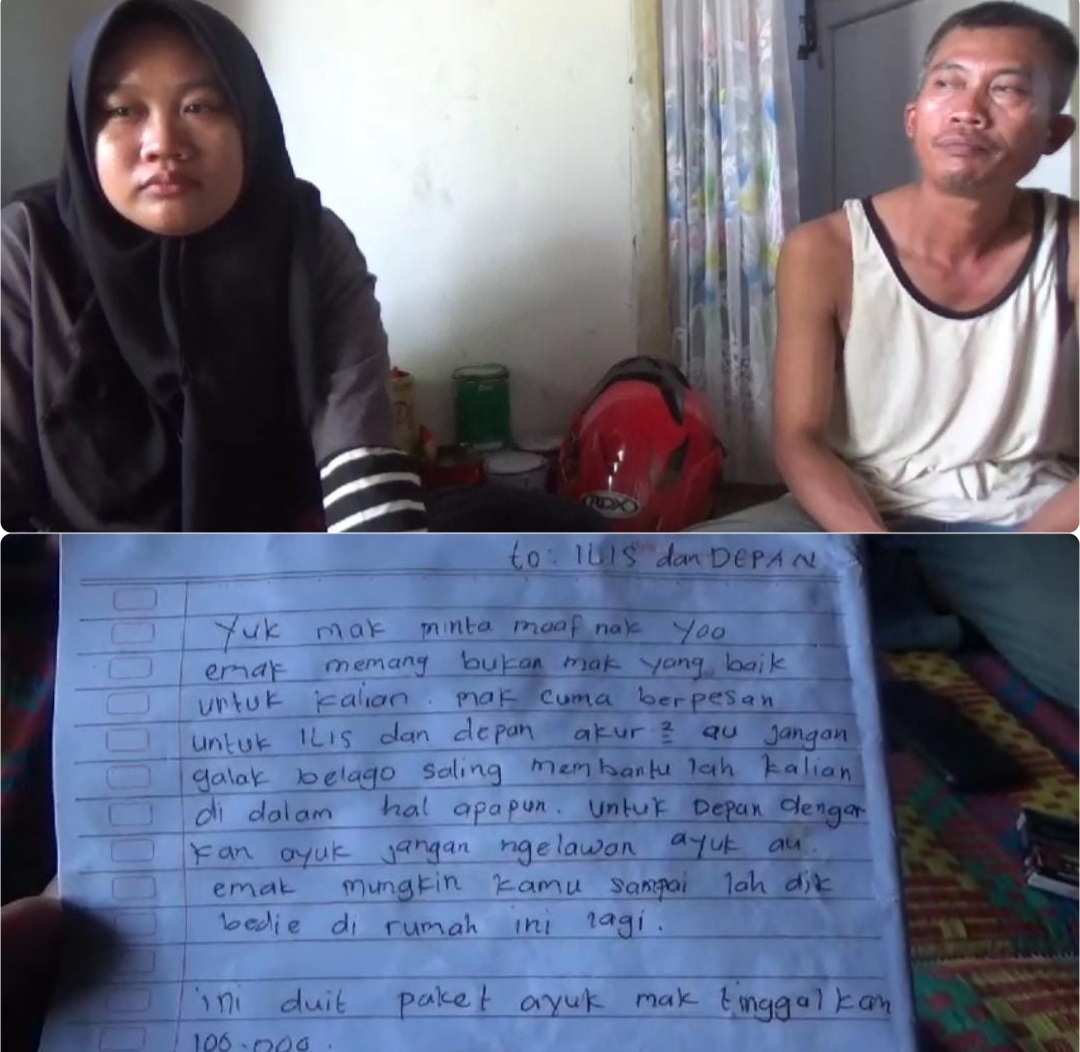 ROXY
to: ILIS dan DEPAN
Yuk mak minta maaf nak yoo
emak memang bukan mak yang baik
untuk kalian. mak cuma berpesan
untuk ILIS dan depan akur 2 au jangan
galak belago saling membantu lah kalian
di dalam hal apapun. untuk Depan dengar
kan ayuk jangan ngelawan ayuk au.
emak mungkin kamu sampai lah dik
bedie di rumah ini lagi.
ini duit paket ayuk mak tinggal kan
100.000.